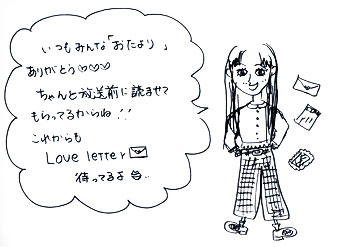 いつもみんな「おたより」
ありがとう♡♡♡
ちゃんと放送前に読ませて
もらってるからね!!
これからも
Love letter
待ってるよ